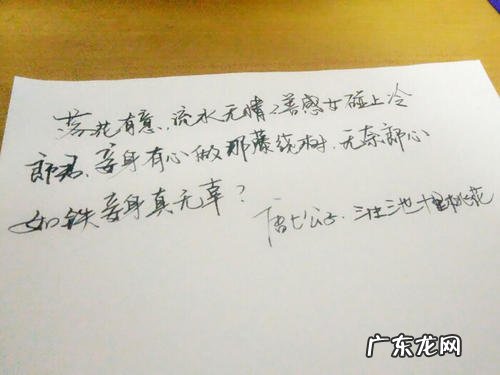 落花有意,流水无情,善感女碰上冷
郎君、妾身有心做那藤绕树,无奈郎心
如铁妾身真无辜?
唐七公子.三生三世十里桃花
广东龙网